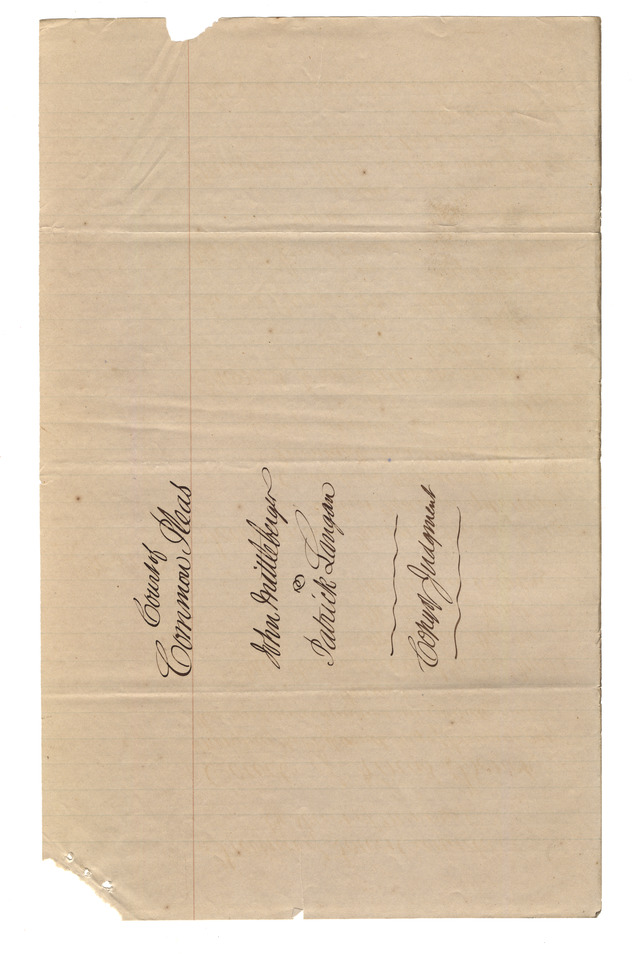 Court of
Common Pleas
John Mittleberger
@
Patrick Langan
Copy of Judgment